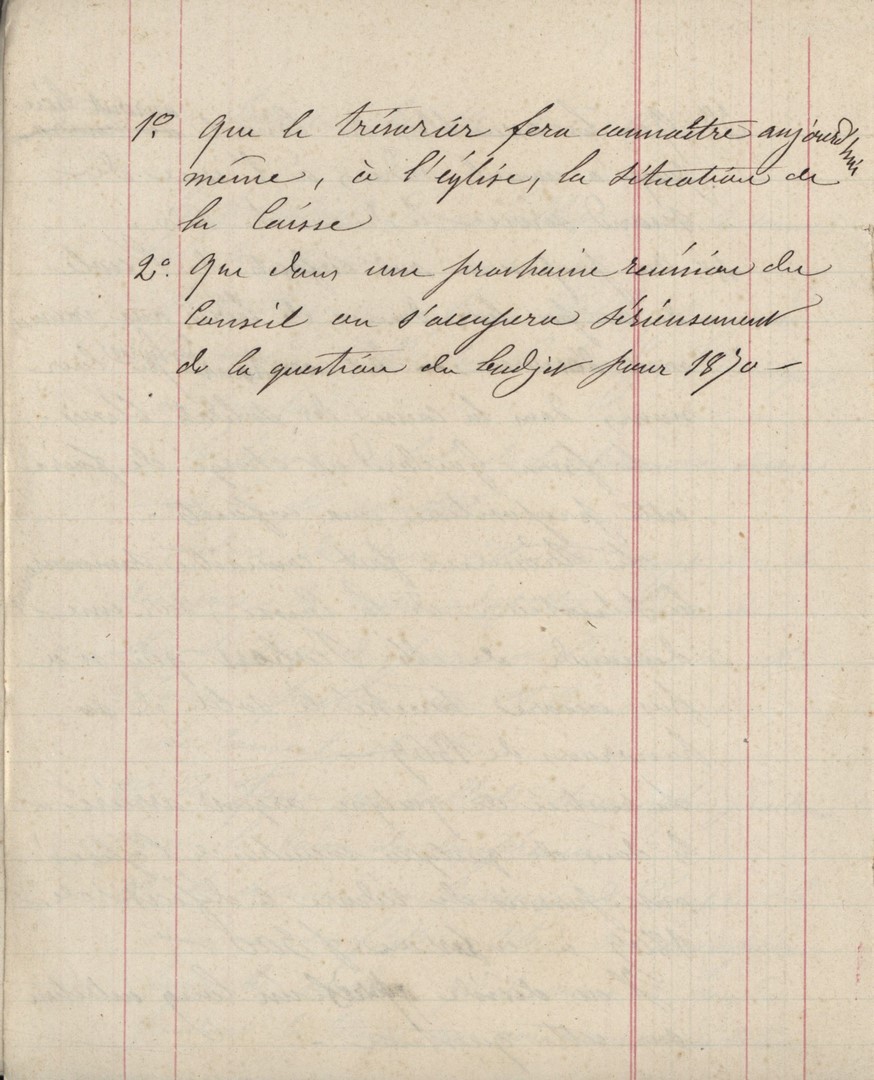 1º. Que le trésorier fera connaître aujourd'hui
même, à l'église, la situation de
la Caisse
2º. Que dans une prochaine réunion du
Conseil on s'occupera sérieusement
de la question du budget pour 1870 —